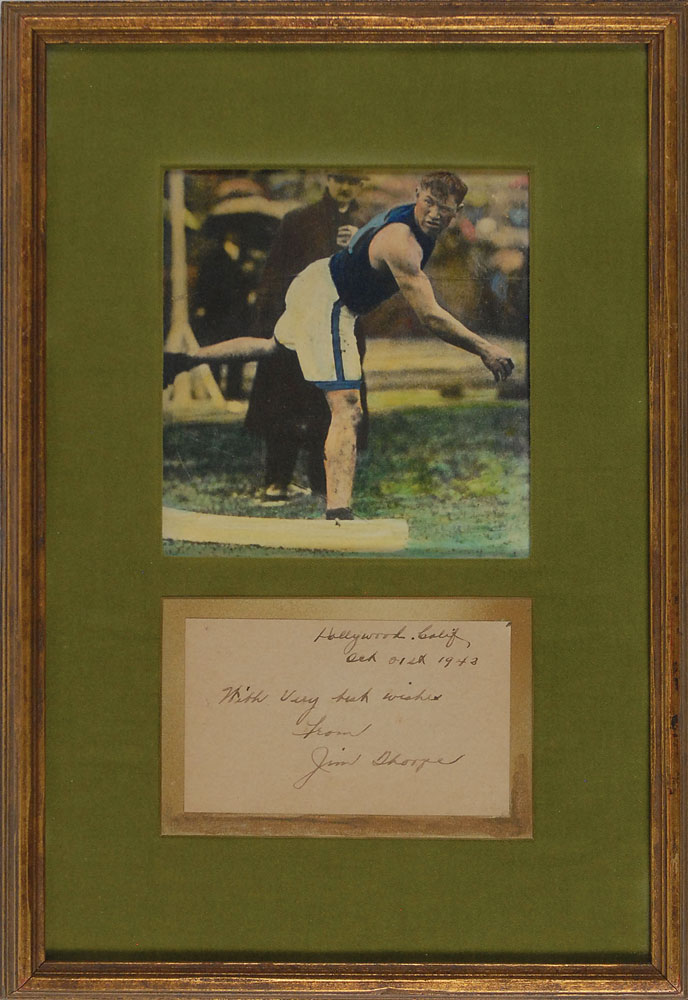 Hollywood. Calif,
Oct 31st 1943
With Very best wishes
From
Jim Thorpe